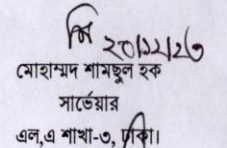 ২০/১২/২৩
মোহাম্মদ শামছুল হক
সার্ভেয়ার
এল,এ শাখা-৩, ঢাকা।